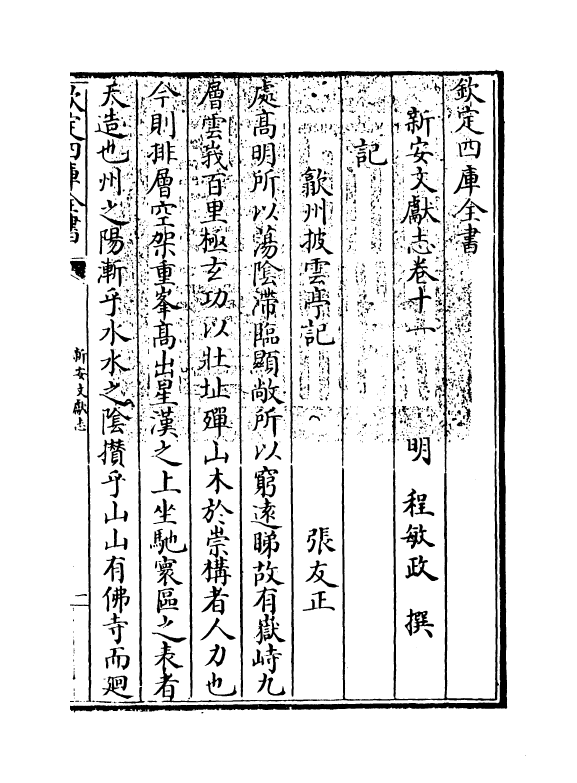 欽定四庫全書
新安文獻志卷十一
明 程敏政 撰
記
歙州披雲亭記
張友正
處高明所以蕩陰滯臨顯敞所以窮遠睇故有嶽峙九
層雲峩百里極玄功以壯址殫山木於崇構者人力也
今則排層空架重峯高出星漢之上坐馳寰區之表者
天造也州之陽漸乎水水之陰攢乎山山有佛寺而廻
欽定四庫全書
新安文獻志